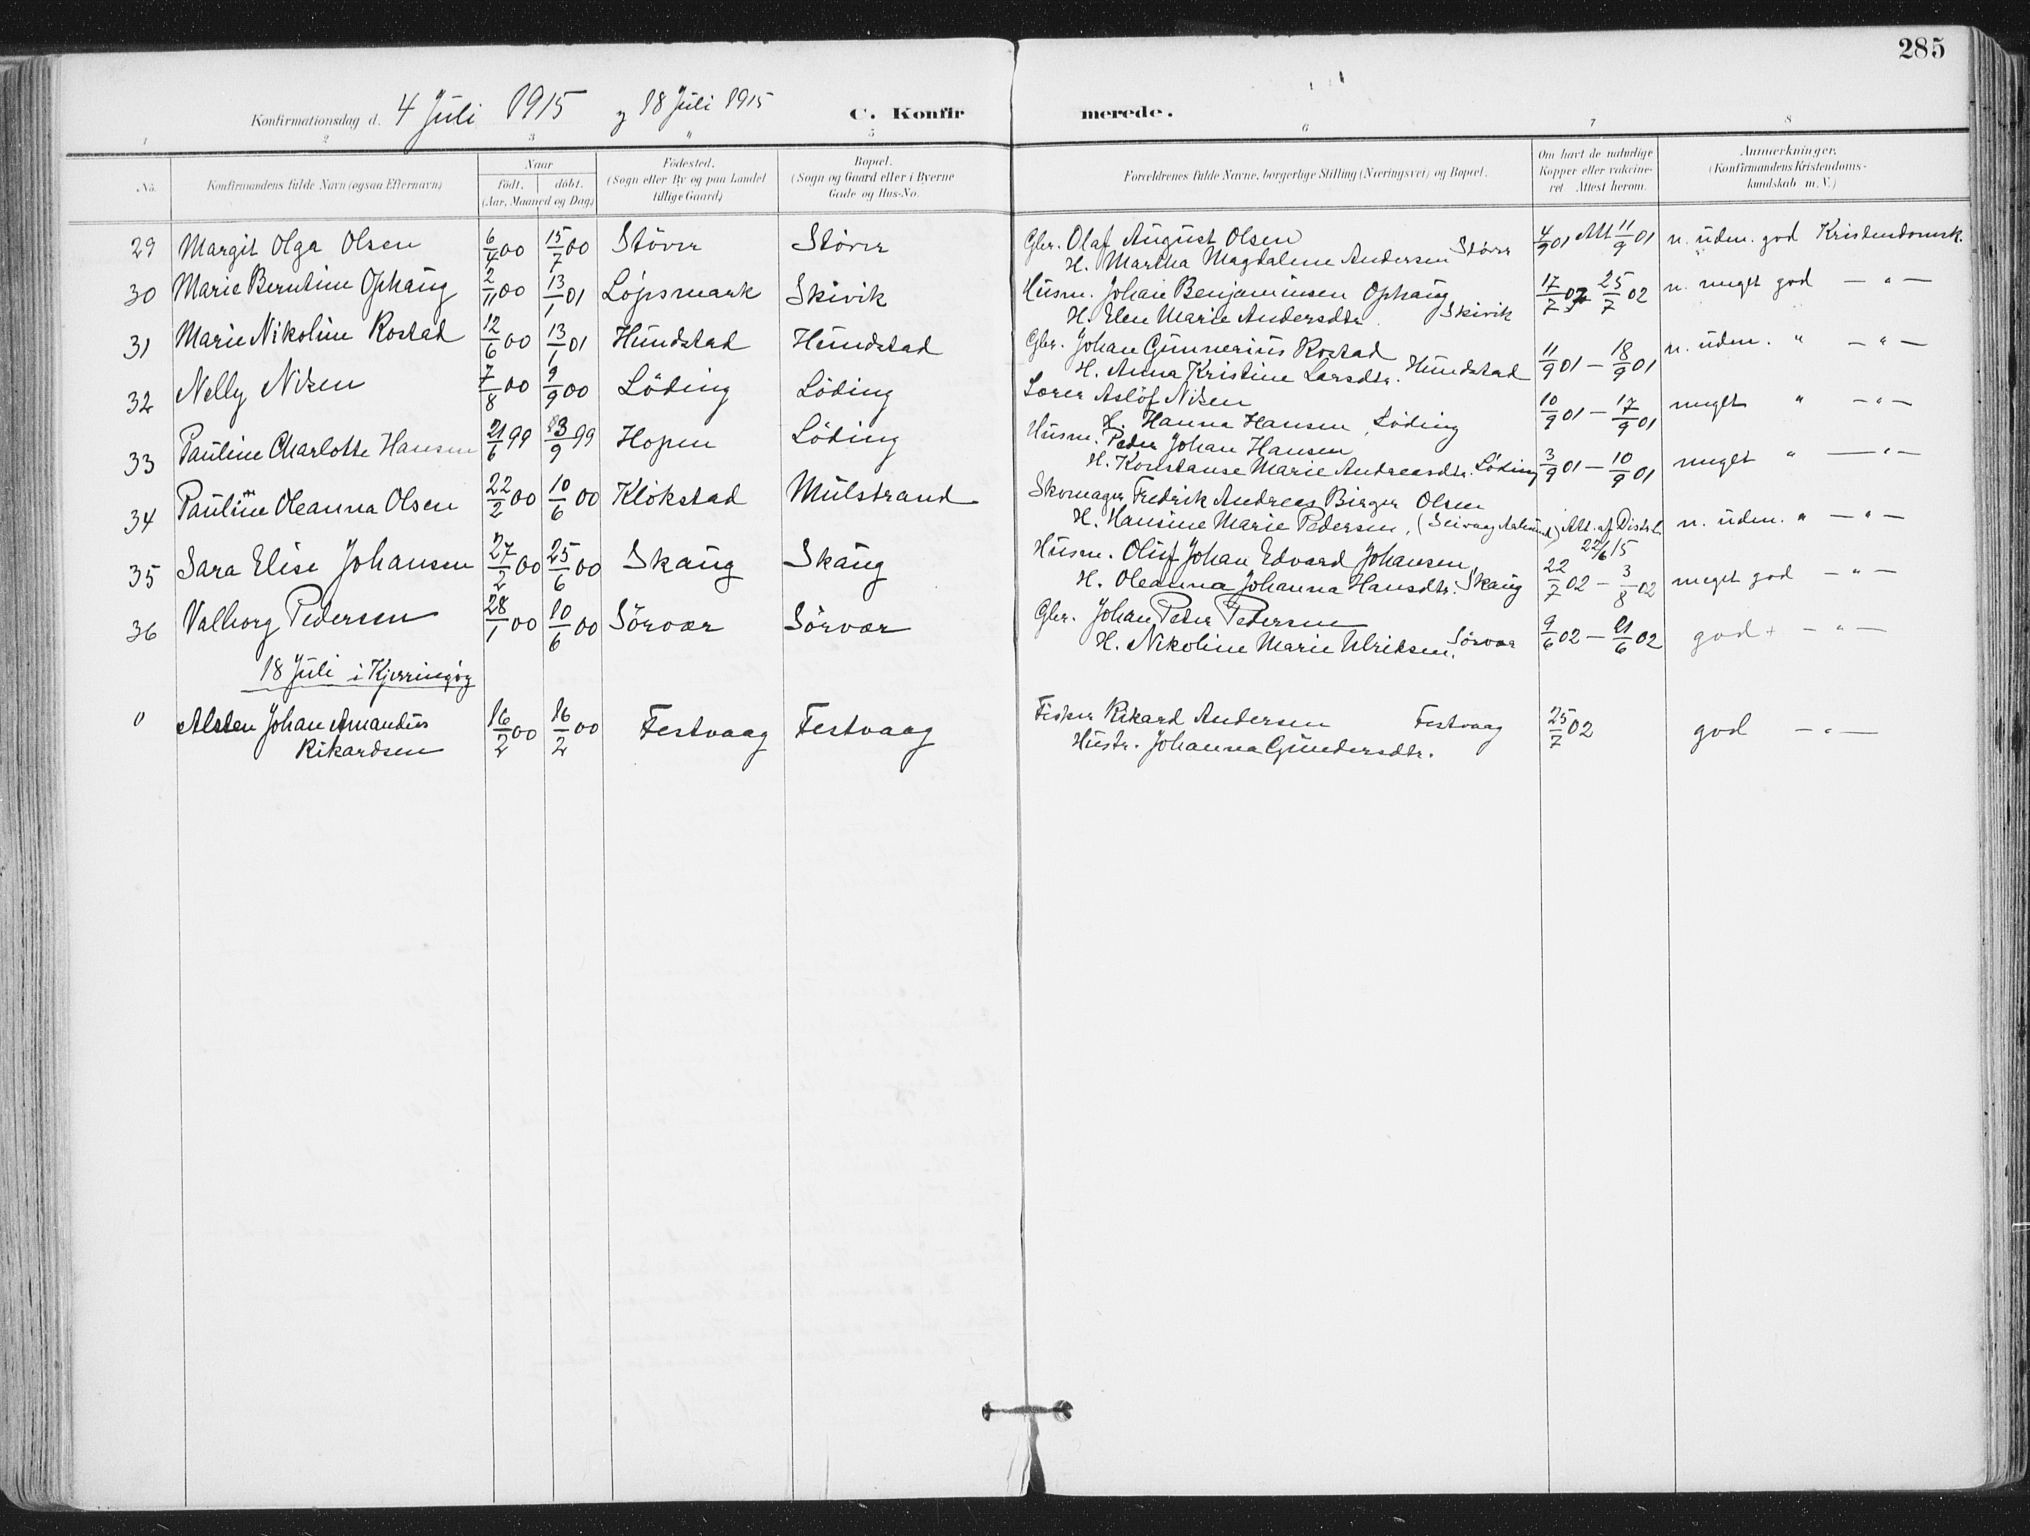 285
Konfirmationsdag d. 4 Juli 1915 og 18 Juli 1915 C. Konfirmerede.
1 2 3 4 5 6 7 8
No. Konfirmandens fulde Navn (ogsaa Efternavn)
Naar født. døbt. (Aar, Maaned og Dag)
Fødested. (Sogn eller By og paa Landet tillige Gaard)
Bopæl. (Sogn og Gaard eller i Byerne Gade og Hus-No.
Forældrenes fulde Navne, borgerlige Stilling (Næringsvei) og Bopæl.
Om havt de naturlige Kopper eller vakcineret Attest herom.
Anmærkninger. (Konfirmandens Kristendomskundskab m. V.)
29 Margit Olga Olsen 6/4 00 15/7 00 Støver Støver Gbr. Olaf August Olsen 4/9 01 Att 11/9 01 n. uden. god Kristendomsk.
H. Martha Magdalene Andersen Støver
30 Marie Berntine Ophaug 2/11 00 13/1 01 Løpsmark Skivik Husm. Johan Benjaminsen Ophaug 17/7 02 25/7 02 n. meget god — " —
H. Elen Marie Andersdtr. Skivik
31 Marie Nikoline Rostad 12/6 00 13/1 01 Hundstad Hundstad Gbr. Johan Gunnerius Rostad 11/9 01 — 18/9 01 n. uden. " — " —
H. Anna Kristine Larsdtr. Hundstad
32 Nelly Nilsen 7/8 00 9/9 00 Løding Løding Lærer Asløf Nilsen 10/9 01 — 17/9 01 meget " — " —
H. Hanna Hansen, Løding
33 Pauline Charlotte Hansen 21/6 99 3/9 99 Hopen Løding Husm. Peder Johan Hansen 3/9 01 — 10/9 01 meget " — " —
H. Konstanse Marie Andreasdtr. Løding
34 Pauline Oleanna Olsen 22/2 00 10/6 00 Klokstad Mulstrand Skomager Fredrik Andreas Birger Olsen
H. Hansine Marie Pedersen, Att. af Distrl. 22/6 15 n. uden. " — " —
35 Sara Elise Johansen 27/2 00 25/6 00 Skaug Skaug Husm. Oluf Johan Edvard Johansen 22/7 02 — 3/8 02 meget god — " —
H. Oleanna Johanna Hansdtr. Skaug
36 Valborg Pedersen 28/1 00 10/6 00 Sørvær Sørvær Gbr. Johan Peter Pedersen 9/6 02 — 21/6 02 god + — " —
H. Nikoline Marie Ulriksen. Sørvær
18 Juli i Kjerringøy
0 Alsten Johan Amandus 16/2 00 16/2 00 Festvaag Festvaag Fisker Rikard Andersen Festvaag 25/7 02 god — " —
Rikardsen Hustr. Johanna Gundersdtr.